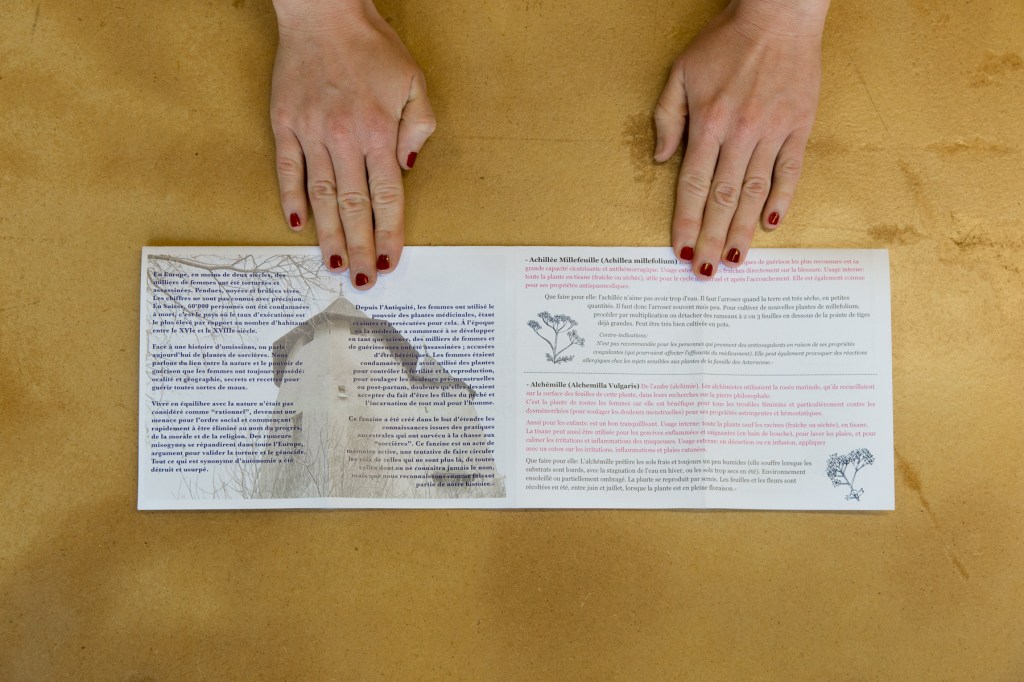 En Europe, en moins de deux siècles, des
milliers de femmes ont été torturées et
assassinées. Pendues, noyées et brûlées vives.
Les chiffres ne sont pas connus avec précision.
En Suisse, 60'000 personnes ont été condamnées
à mort, c'est le pays où le taux d'exécutions est
le plus élevé par rapport au nombre d'habitants
entre le XVIe et le XVIIIe siècle.
Face à une histoire d'omissions, on parle
aujourd'hui de plantes de sorcières. Nous
parlons du lien entre la nature et le pouvoir de
guérison que les femmes ont toujours possédé:
oralité et géographie, secrets et recettes pour
guérir toutes sortes de maux.
Vivre en équilibre avec la nature n'était pas
considéré comme "rationnel", devenant une
menace pour l'ordre social et commençant
rapidement à être éliminé au nom du progrès,
de la morale et de la religion. Des rumeurs
misogynes se répandirent dans toute l'Europe,
argument pour valider la torture et le génocide.
Tout ce qui est synonyme d'autonomie a été
détruit et usurpé.
Depuis l'Antiquité, les femmes ont utilisé le
pouvoir des plantes médicinales, étant
craintes et persécutées pour cela. À l'époque
où la médecine a commencé à se développer
en tant que science, des milliers de femmes et
de guérisseuses ont été assassinées ; accusées
d'être hérétiques. Les femmes étaient
condamnées pour avoir utilisé des plantes
pour contrôler la fertilité et la reproduction,
pour soulager les douleurs prémenstruelles
ou post-partum, douleurs qu'elles devaient
accepter du fait d'être les filles du péché et
l'incarnation de tout mal pour l'homme.
Ce fanzine a été créé dans le but d'étendre les
connaissances issues des pratiques
ancestrales qui ont survécu à la chasse aux
"sorcières". Ce fanzine est un acte de
mémoire active, une tentative de faire circuler
les voix de celles qui ne sont plus là, de toutes
celles dont on ne connaîtra jamais le nom,
mais que nous reconnaissons comme faisant
partie de notre histoire.-
- Achillée Millefeuille (Achillea millefolium) de guérison les plus reconnues est sa
grande capacité cicatrisante et antihémorragique. Usage externe: fraîches directement sur la blessure. Usage interne:
toute la plante en tisane (fraîche ou séchée), utile pour le cycle menstruel et après l'accouchement. Elle est également connue
pour ses propriétés antispasmodiques.
Que faire pour elle: l'achillée n'aime pas avoir trop d'eau. Il faut l'arroser quand la terre est très sèche, en petites
quantités. Il faut donc l'arroser souvent mais peu. Pour cultiver de nouvelles plantes de millefolium,
procéder par multiplication ou détacher des rameaux à 2 ou 3 feuilles en dessous de la pointe de tiges
déjà grandes. Peut être très bien cultivée en pots.
Contre-indications:
N'est pas recommandée pour les personnes qui prennent des anticoagulants en raison de ses propriétés
coagulantes (qui pourraient affecter l'efficacité du médicament). Elle peut également provoquer des réactions
allergiques chez les sujets sensibles aux plantes de la famille des Asteraceae.-
- Alchémille (Alchemilla Vulgaris) De l'arabe (alchimie). Les alchimistes utilisaient la rosée matinale, qu'ils recueillaient
sur la surface des feuilles de cette plante, dans leurs recherches sur la pierre philosophale.
C'est la plante de toutes les femmes car elle est bénéfique pour tous les troubles féminins et particulièrement contre les
dysménorrhées (pour soulager les douleurs menstruelles) pour ses propriétés astringentes et hémostatiques.
Aussi pour les enfants: est un bon tranquillisant. Usage interne: toute la plante sauf les racines (fraîche ou séchée), en tisane.
La tisane peut aussi être utilisée pour les gencives enflammées et saignantes (en bain de bouche), pour laver les plaies, et pour
calmer les irritations et inflammations des muqueuses. Usage externe: en décoction ou en infusion, appliquée
avec un coton sur les irritations, inflammations et plaies cutanées.
Que faire pour elle: L'alchémille préfère les sols frais et toujours un peu humides (elle souffre lorsque les
substrats sont lourds, avec la stagnation de l'eau en hiver, ou les sols trop secs en été). Environnement
ensoleillé ou partiellement ombragé. La plante se reproduit par semis. Les feuilles et les fleurs sont
récoltées en été, entre juin et juillet, lorsque la plante est en pleine floraison.-